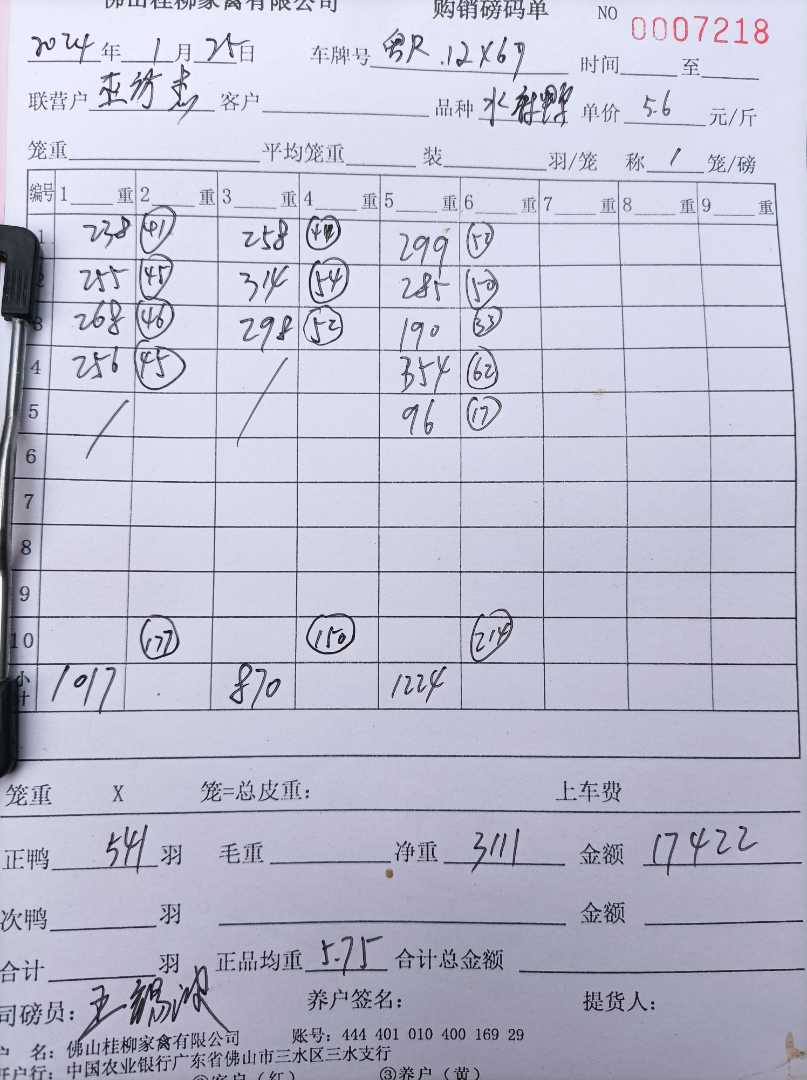 佛山桂柳家禽有限公司 购销磅码单 NO 0007218
2024年1月25日 车牌号 粤R.12X67 时间 至
联营户 客户 品种 水 单价 5.6 元/斤
笼重 平均笼重 装 羽/笼 称 1 笼/磅
编号 1 重 2 重 3 重 4 重 5 重 6 重 7 重 8 重 9 重
1 238 41 258 44 299 52
2 255 45 314 54 285 50
3 268 46 298 52 190 33
4 256 45 / 354 62
5 / 96 17
6
7
8
9
10 177 150 214
小计 1017 870 1224
笼重 X 笼=总皮重: 上车费
正鸭 541 羽 毛重 净重 3111 金额 17422
次鸭 羽 金额
合计 羽 正品均重 5.75 合计总金额
司磅员: 养户签名: 提货人:
户 名: 佛山桂柳家禽有限公司 账号: 444 401 010 400 169 29
开户行: 中国农业银行广东省佛山市三水区三水支行
②客户(红) ③养户(黄)